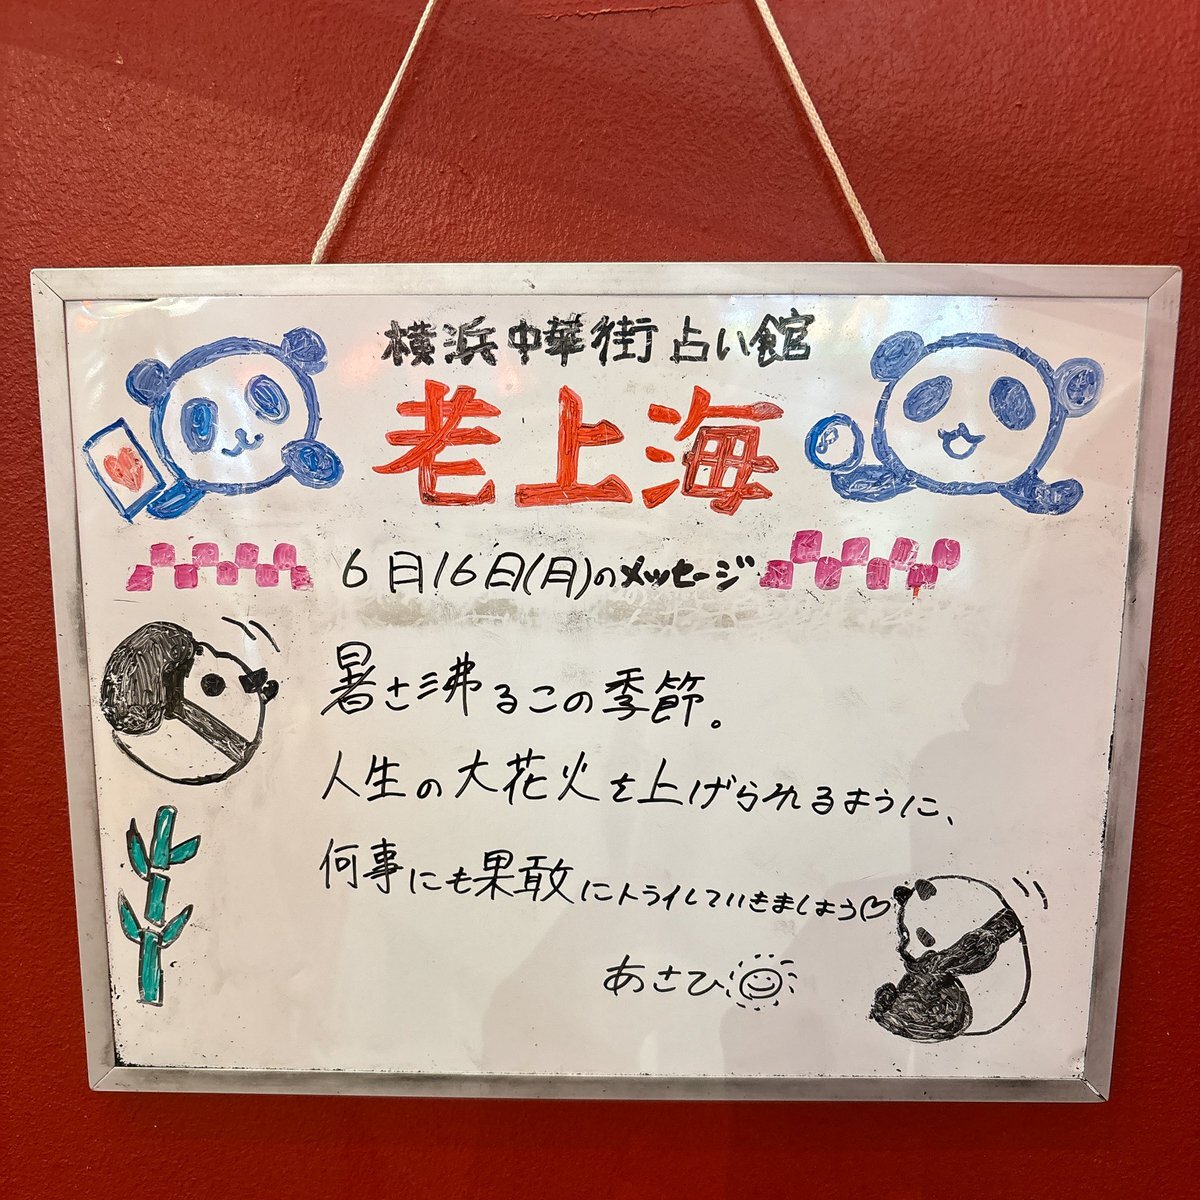 横浜中華街占い館
老上海
6日16日(月)のメッセージ
暑さ沸るこの季節。
人生の大花火を上げられるように、
何事にも果敢にトライしていきましょう♡
あさひ